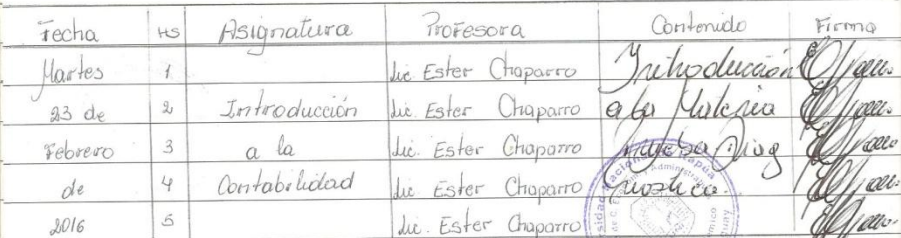 Fecha HS Asignatura Profesora Contenido Firma
Martes 1 Lic. Ester Chaparro Introducción
23 de 2 Introducción Lic. Ester Chaparro a la Materia
Febrero 3 a la Lic. Ester Chaparro Prueba Diag
de 4 Contabilidad Lic. Ester Chaparro nostica.
2016 5 Lic. Ester Chaparro